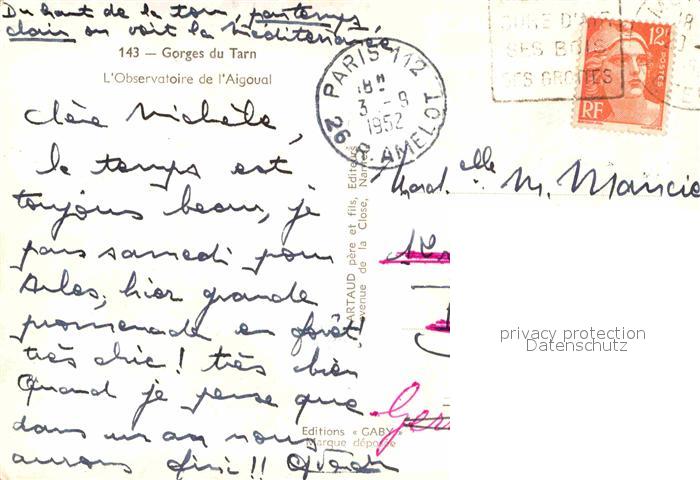 Du haut de la tour, par temps
clair on voit la Méditerranée
143 — Gorges du Tarn
L'Observatoire de l'Aigoual
Chère Michèle,
le temps est
toujours beau, je
pars samedi pour
Arles, hier grande
promenade en forêt
très chic! très bien
Quand je pense que
dans un an nous
aurons fini!!
PARIS 112
18H
3 - 9
1952
26 R. AMELOT
CURE D'AIR
SES BOIS
SES GROTTES
12F
POSTES
RF
ARTAUD père et fils, Editeurs
avenue de la Close, Nantes
Editions « GABY »
Marque déposée
Mad elle M.
Ger
privacy protection
Datenschutz